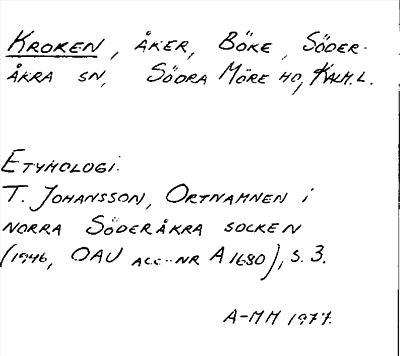 KROKEN, ÅKER, BÖKE, SÖDER-
ÅKRA SN, SÖDRA MÖRE HD, KALM.L.
ETYMOLOGI:
T. JOHANSSON, ORTNAMNEN I
NORRA SÖDERÅKRA SOCKEN
(1946, OAU ACC-NR A 1680), S. 3.
A-MM 1977.